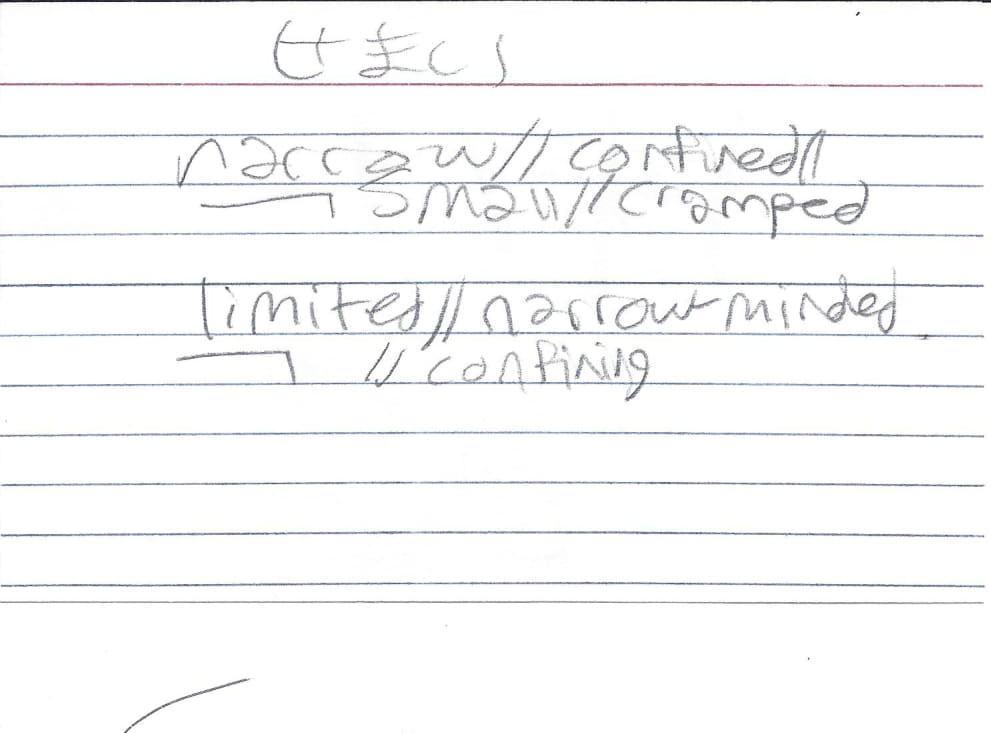 せまい
narrow // confined //
small // cramped
limited // narrow-minded
// confining